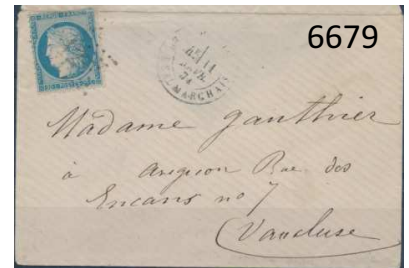 6679
MARCHAIS
Madame Gauthier
à Avignon Rue des
Encans no 7
Vaucluse